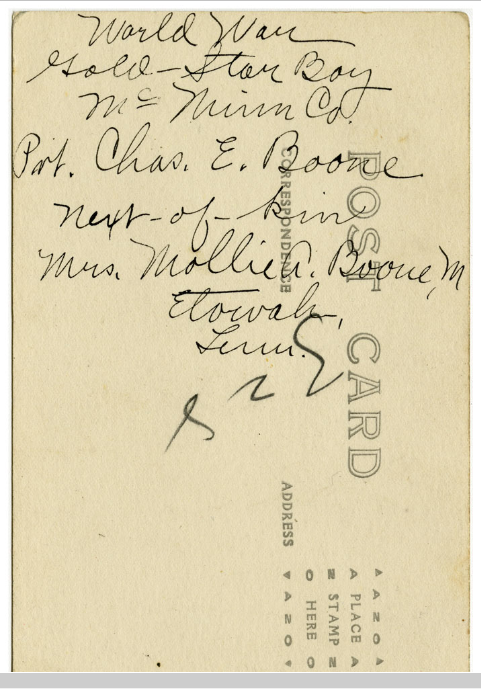 World War
Gold-Star Boy
Mc Minn Co.
Pvt. Chas. E. Boone
next-of-kin
Mrs. Mollie A. Boone, M
Etowah,
Tenn.
POST CARD
CORRESPONDENCE
ADDRESS
AZO
PLACE
STAMP
HERE
AZO